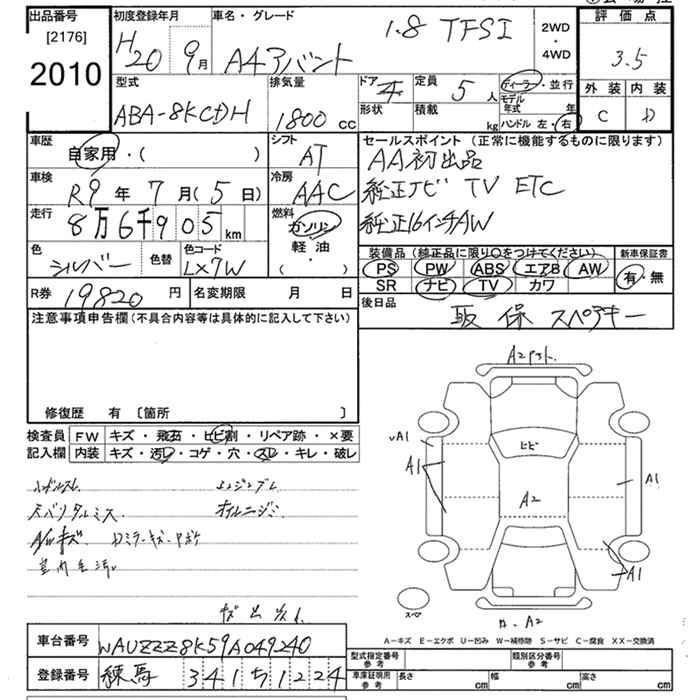 出品番号
[2176]
2010
初度登録年月
H20 9月
車名・グレード
A4アバント 1.8 TFSI
2WD
・
4WD
評価点
3.5
外装 内装
C D
型式
ABA-8KCDH
排気量
1800 cc
ドア
形状
定員 5人
積載 kg
ディーラー・並行
モデル年式 年
ハンドル 左・右
車歴
自家用・( )
シフト
AT
セールスポイント(正常に機能するものに限ります)
AA初出品
純正ナビ TV ETC
純正16インチAW
車検
R9年7月(5日)
冷房
AAC
走行
8万6千905km
燃料
ガソリン
軽油
( )
色
シルバー
色替
色コード
LX7W
装備品(純正品に限り○をつけてください)
PS PW ABS エアB AW
SR ナビ TV カワ
新車保証書
有・無
R券 19820円
名変期限 月 日
後日品
取 保 スペアキー
注意事項申告欄(不具合内容等は具体的に記入して下さい)
修復歴 有 [箇所 ]
検査員記入欄
FW キズ・飛石・ヒビ割・リペア跡・×要
内装 キズ・汚レ・コゲ・穴・スレ・キレ・破レ
ハンドルスレ エンジンブレ
オイルニジミ
AWキズ
A2
νA1
A1
ヒビ
A1
A2
A1
スペア
A2
A-キズ E-エクボ U-凹み W-補修跡 S-サビ C-腐食 XX-交換済
車台番号 WAUZZZ8K59A049240
登録番号 練馬 341ち1224
型式指定番号
参考
類別区分番号
参考
車庫証明用
参考
長さ cm
幅 cm
高さ cm